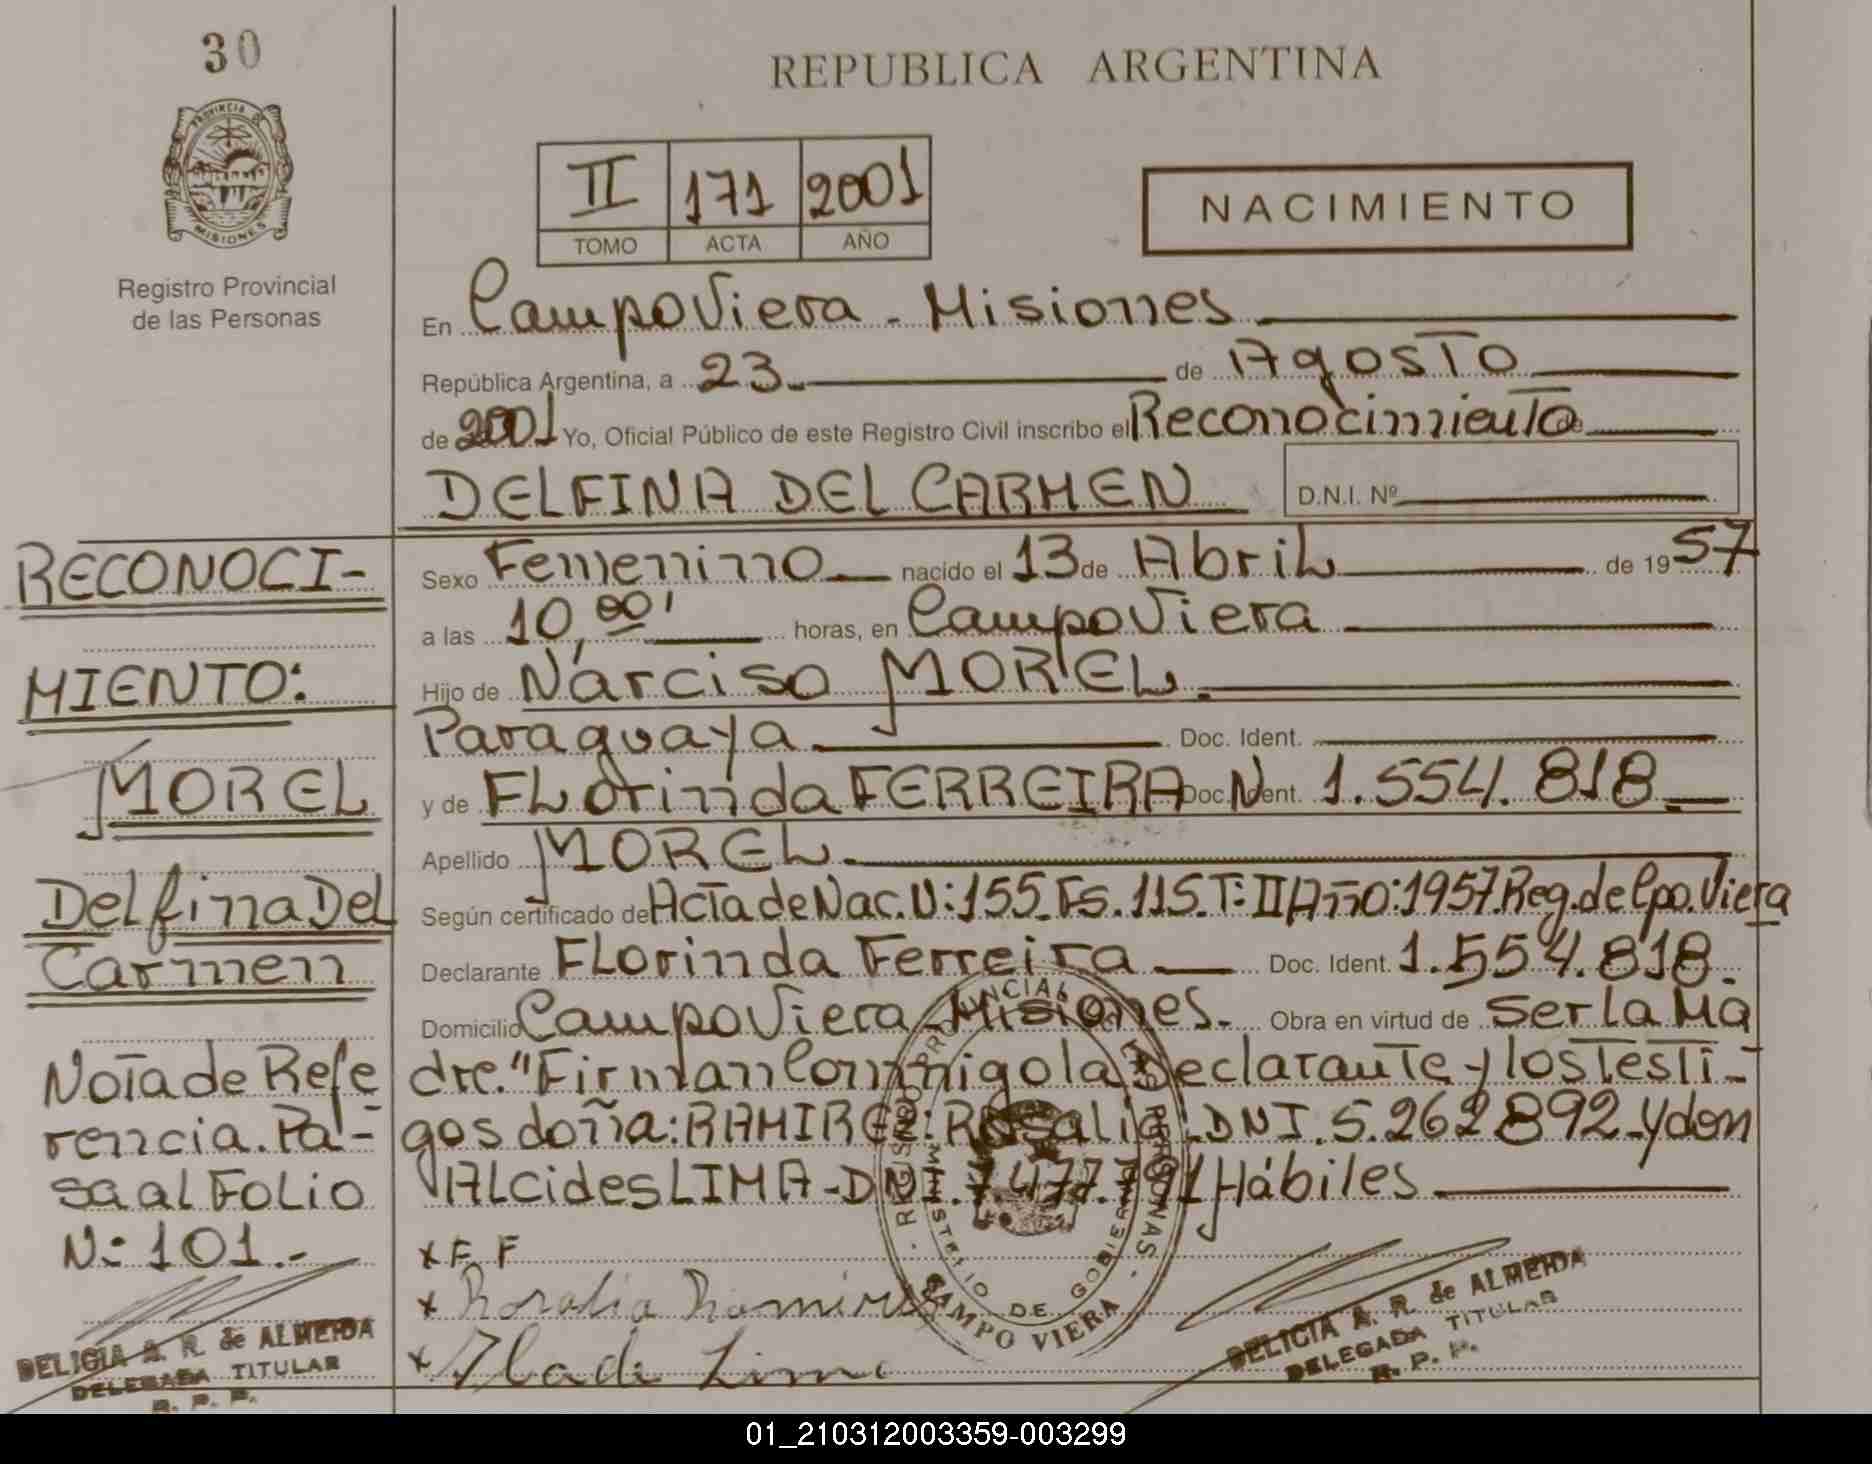 30
REPUBLICA ARGENTINA
PROVINCIA DE
MISIONES
Registro Provincial
de las Personas
II 171 2001
TOMO ACTA AÑO
NACIMIENTO
En Campo Viera - Misiones
República Argentina, a 23 de Agosto
de 2001 Yo, Oficial Público de este Registro Civil inscribo el Reconocimiento de
DELFINA DEL CARMEN D.N.I. Nº
Sexo Femenino nacido el 13 de Abril de 19 57
a las 10,00' horas, en Campo Viera
Hijo de Narciso MOREL.
Paraguaya Doc. Ident.
y de FLorinda FERREIRA Doc. Ident. N 1.554.818
Apellido MOREL.
Según certificado de Acta de Nac. N: 155. Fs. 115. T: II Año: 1957. Reg. de Cpo. Viera
Declarante FLorinda Ferreira Doc. Ident. 1.554.818.
Domicilio Campo Viera - Misiones. Obra en virtud de ser la Ma
dre." Firman Conmigo la Declarante y los Testi-
gos doña: RAMIREZ: Rosalia. DNI. 5.262892 y don
ALcides LIMA - DNI. 7.477.791 Hábiles
x F F
x Rosalia Ramires
x Lima
RECONOCI-
MIENTO:
MOREL
Delfina Del
Carmen
Nota de Refe
rencia. Pa-
sa al FOLio
N: 101.-
DELICIA A. R. de ALMEIDA
DELEGADA TITULAR
R. P. P.
REGISTRO PROVINCIAL DE LAS PERSONAS
MINISTERIO DE GOBIERNO
CAMPO VIERA
DELICIA A. R. de ALMEIDA
DELEGADA TITULAR
R. P. P.
01_210312003359-003299